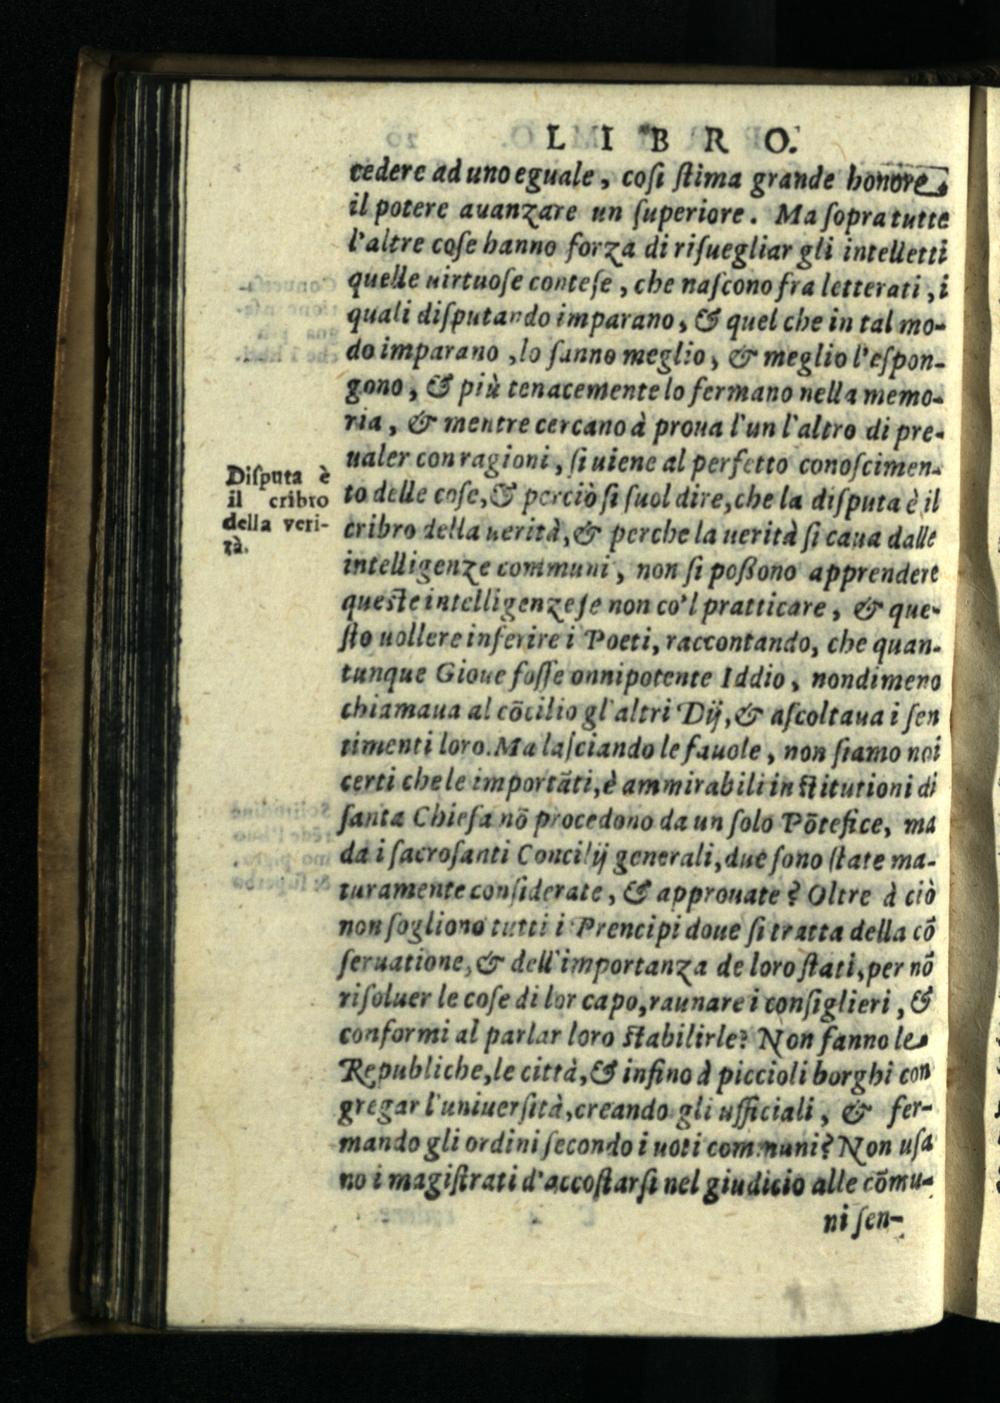 LIBRO.
cedere ad uno eguale, cosi stima grande honore
il potere auanzare un superiore. Ma sopra tutte
l'altre cose hanno forza di risuegliar gli intelletti
quelle uirtuose contese, che nascono fra letterati, i
quali disputando imparano, & quel che in tal mo-
do imparano, lo sanno meglio, & meglio l'espon-
gono, & più tenacemente lo fermano nella memo-
ria, & mentre cercano à proua l'un l'altro di pre-
ualer con ragioni, si uiene al perfetto conoscimen-
to delle cose, & perciò si suol dire, che la disputa è il
cribro della uerità, & perche la uerità si caua dalle
intelligenze communi, non si possono apprendere
queste intelligenze se non co'l pratticare, & que-
sto uollere inferire i Poeti, raccontando, che quan-
tunque Gioue fosse onnipotente Iddio, nondimeno
chiamaua al cōcilio gl'altri Dij, & ascoltaua i sen
timenti loro. Ma lasciando le fauole, non siamo noi
certi che le importāti, è ammirabili institutioni di
santa Chiesa nō procedono da un solo Pōtefice, ma
da i sacrosanti Concilij generali, due sono state ma-
turamente considerate, & approuate? Oltre à ciò
non sogliono tutti i Prencipi doue si tratta della cō
seruatione, & dell'importanza de loro stati, per nō
risoluer le cose di lor capo, raunare i consiglieri, &
conformi al parlar loro stabilirle? Non fanno le
Republiche, le città, & infino à piccioli borghi con
gregar l'uniuersità, creando gli ufficiali, & fer-
mando gli ordini secondo i uoti communi? Non usa
no i magistrati d'accostarsi nel giudicio alle cōmu-
ni sen-
Disputa è
il cribro
della veri-
tà.